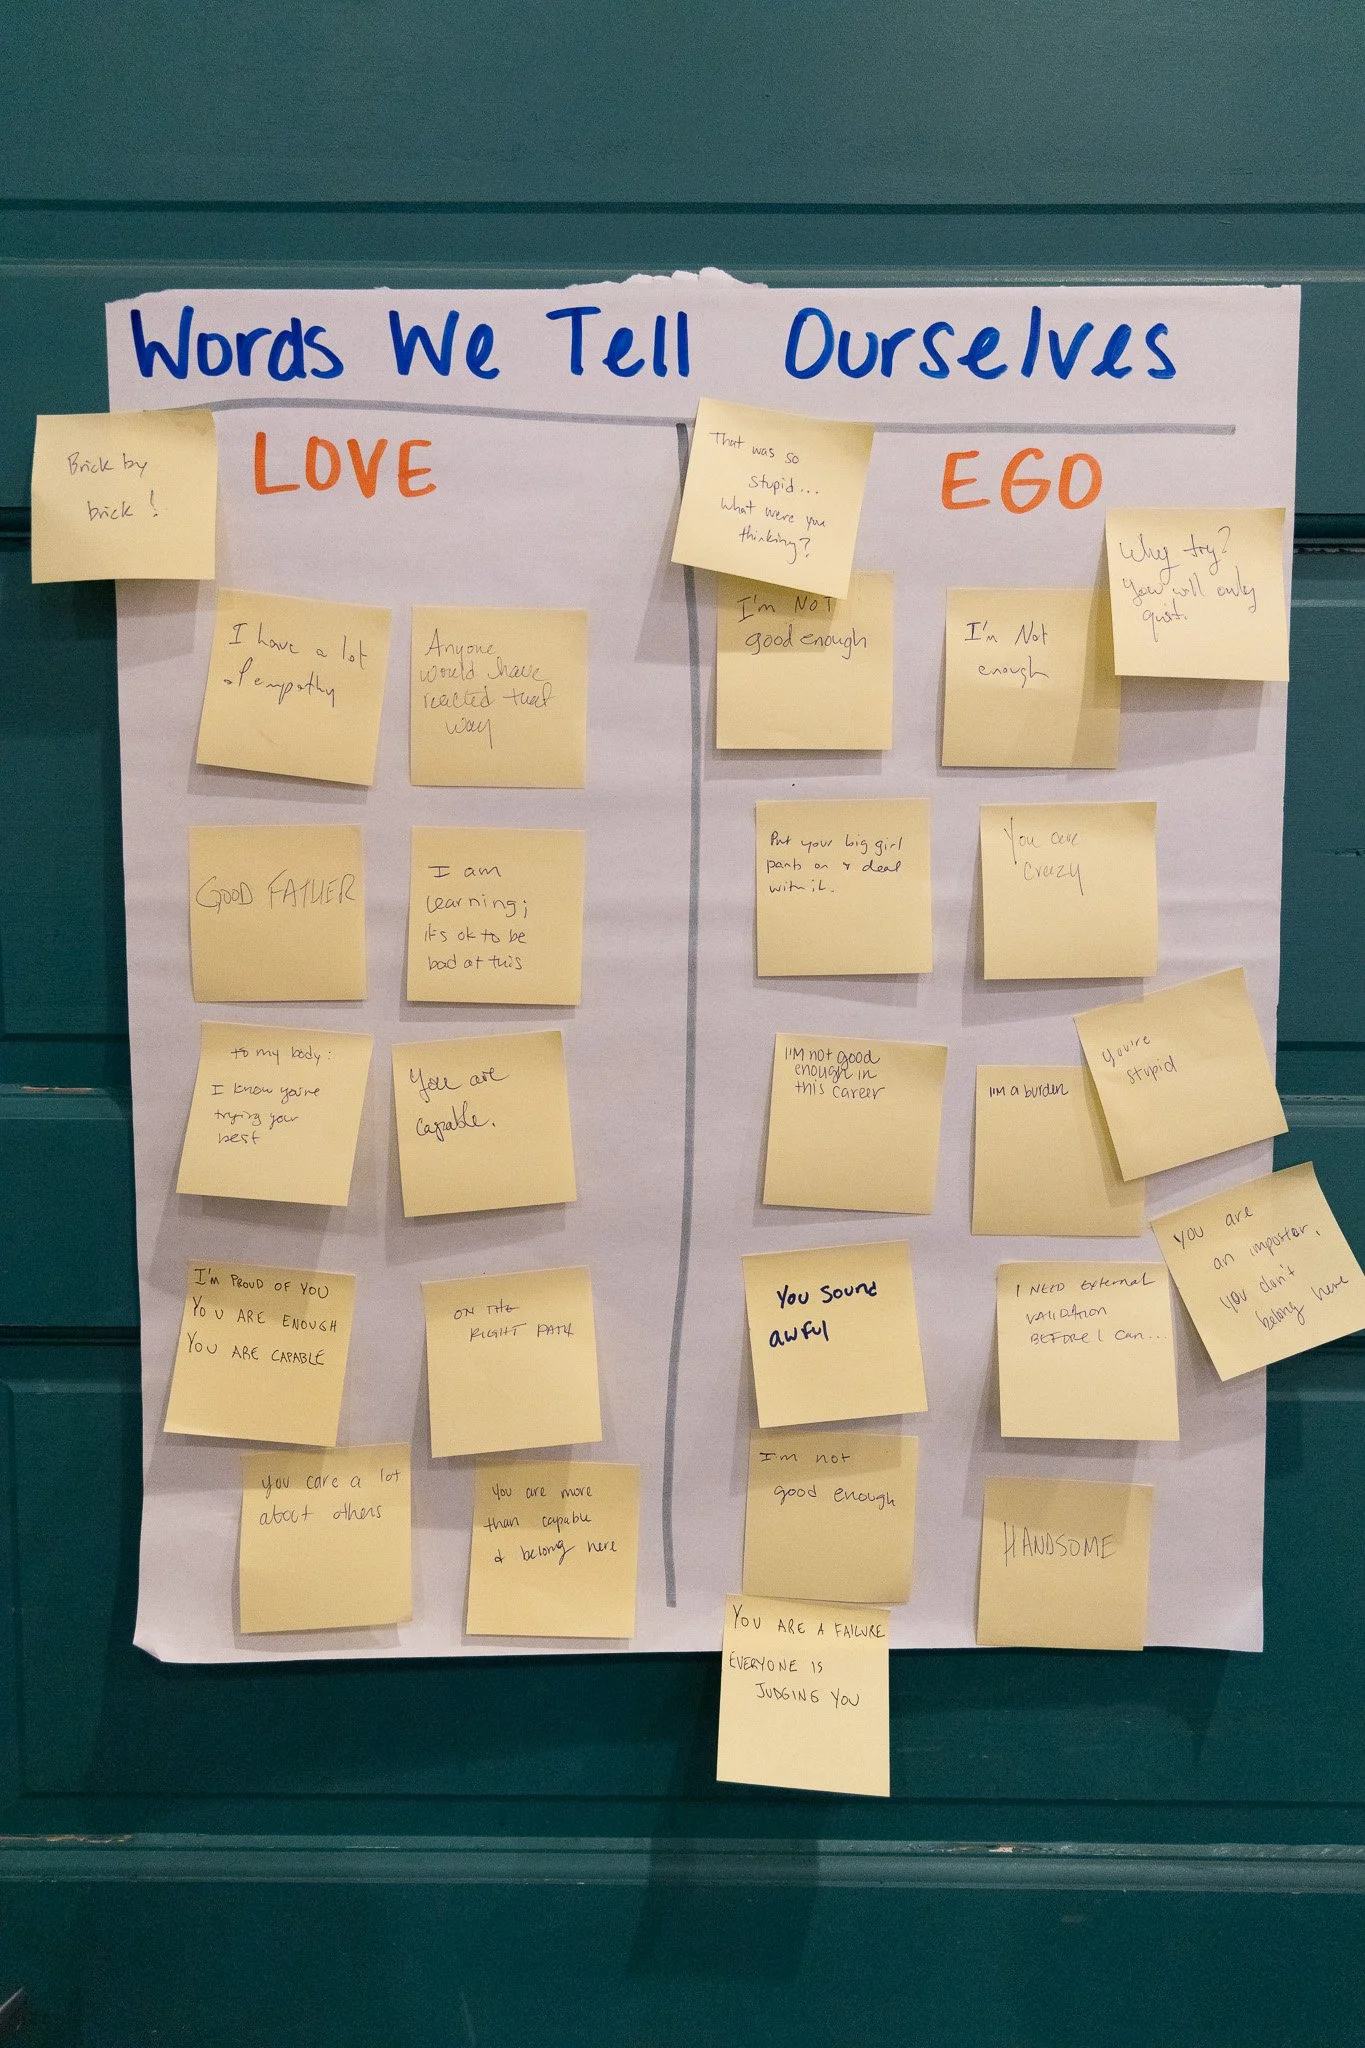 Words We Tell Ourselves
LOVE
Brick by
brick!
I have a lot
of empathy
Anyone
would have
reacted that
way
GOOD FATHER
I am
learning;
it's ok to be
bad at this
to my body:
I know you're
trying your
best
You are
capable.
I'M PROUD OF YOU
YOU ARE ENOUGH
YOU ARE CAPABLE
ON THE
RIGHT PATH
you care a lot
about others
You are more
than capable
& belong here
EGO
That was so
stupid...
What were you
thinking?
I'm NOT
good enough
I'm Not
enough
Why try?
You will only
quit.
Put your big girl
pants on & deal
with it.
You are
crazy
I'M not good
enough in
this career
I'm a burden
You're
stupid
You are
an impostor,
you don't
belong here
You sound
awful
I NEED external
VALIDATION
BEFORE I can...
I'm not
good enough
HANDSOME
YOU ARE A FAILURE
EVERYONE IS
JUDGING YOU